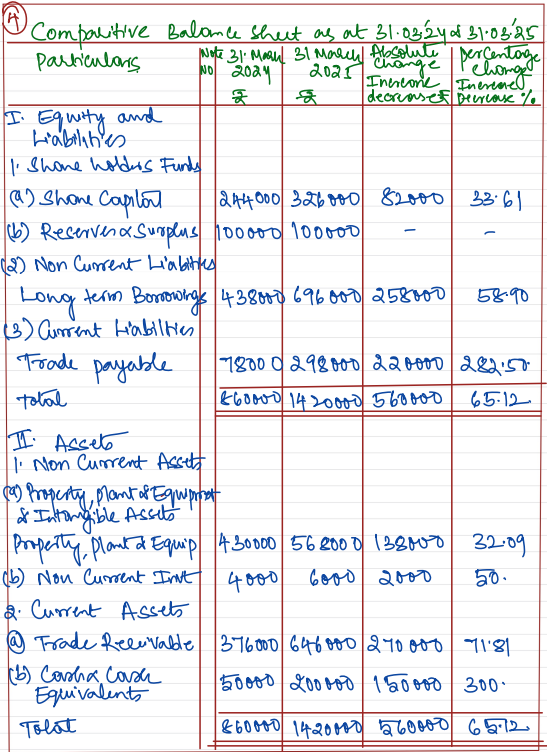 4
Comparitive Balance Sheet as at 31.03.'24 & 31.03.'25
Particulars Note No 31 March 2024 ₹ 31 March 2025 ₹ Absolute Change Increase decrease ₹ percentage change Increase Decrease %
I. Equity and
Liabilities
1. Share holders Funds
(a) Share Capital 244000 326000 82000 33.61
(b) Reserves & Surplus 100000 100000 - -
(2) Non Current Liabilities
Long term Borrowings 438000 696000 258000 58.90
(3) Current Liabilities
Trade payable 78000 298000 220000 282.50.
Total 860000 1420000 560000 65.12
II. Assets
1. Non Current Assets
(a) Property, Plant & Equipment
& Intangible Assets
Property, Plant & Equip 430000 568000 138000 32.09
(b) Non Current Invt 4000 6000 2000 50.
2. Current Assets
(a) Trade Receivable 376000 646000 270000 71.81
(b) Cash & Cash
Equivalents 50000 200000 150000 300.
Total 860000 1420000 560000 65.12